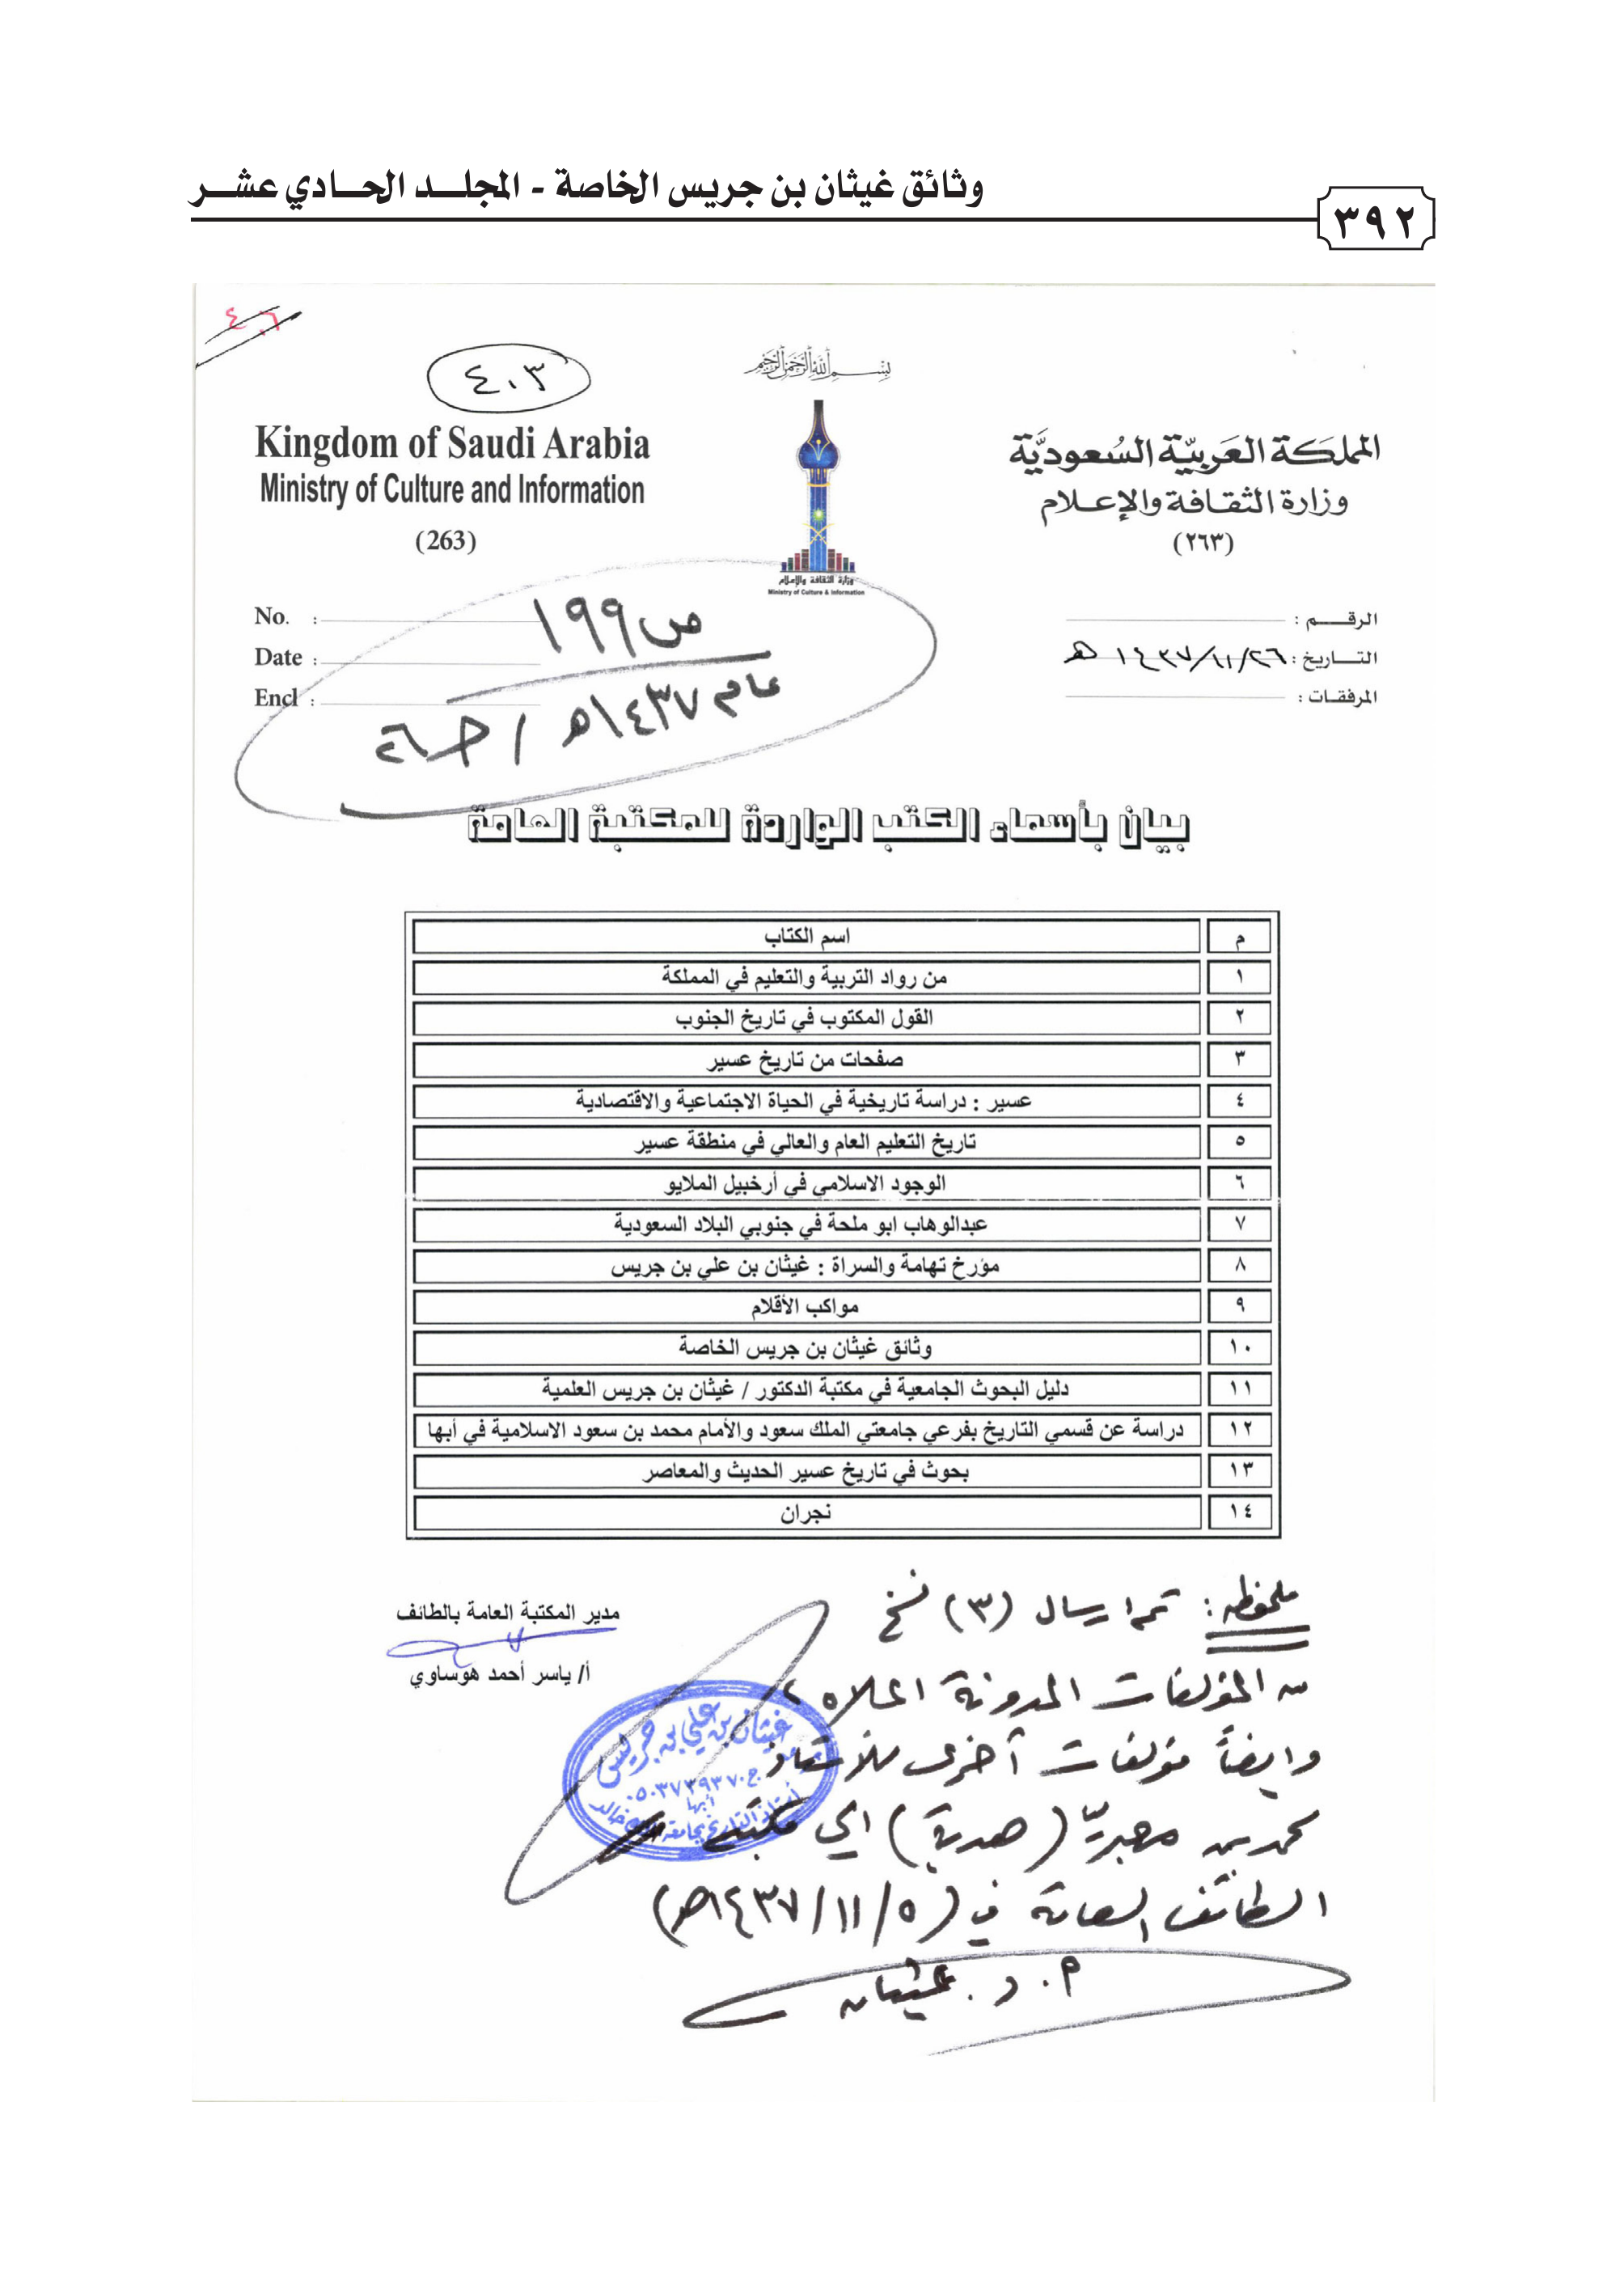 وثائق غيثان بن جريس الخاصة - المجلد الحادي عشر
٣٩٢
٤٠٦
٤٠٣
بسم الله الرحمن الرحيم
المملكة العربية السعودية
وزارة الثقافة والإعلام
(٢٦٣)
Kingdom of Saudi Arabia
Ministry of Culture and Information
(263)
وزارة الثقافة والإعلام
Ministry of Culture & Information
الرقم :
التاريخ : ١٤٣٧/١١/٢٦ هـ
المرفقات :
No. :
Date :
Encl :
ص ١٩٩
عام ١٤٣٧هـ / حـ ٢٦
بيان بأسماء الكتب الواردة للمكتبة العامة
م اسم الكتاب
١ من رواد التربية والتعليم في المملكة
٢ القول المكتوب في تاريخ الجنوب
٣ صفحات من تاريخ عسير
٤ عسير : دراسة تاريخية في الحياة الاجتماعية والاقتصادية
٥ تاريخ التعليم العام والعالي في منطقة عسير
٦ الوجود الاسلامي في أرخبيل الملايو
٧ عبدالوهاب ابو ملحة في جنوبي البلاد السعودية
٨ مؤرخ تهامة والسراة : غيثان بن علي بن جريس
٩ مواكب الأقلام
١٠ وثائق غيثان بن جريس الخاصة
١١ دليل البحوث الجامعية في مكتبة الدكتور / غيثان بن جريس العلمية
١٢ دراسة عن قسمي التاريخ بفرعي جامعتي الملك سعود والأمام محمد بن سعود الاسلامية في أبها
١٣ بحوث في تاريخ عسير الحديث والمعاصر
١٤ نجران
مدير المكتبة العامة بالطائف
أ/ ياسر أحمد هوساوي
ملحوظه : تم ارسال (٣) نسخ
من المؤلفات المدونة اعلاه ،
وايضاً مؤلفات آخرى للأستاذ
محمد بن (هدية) الى مكتبة
الطائف العامة في (١٤٣٧/١١/٥هـ)
أ. د. غيثان
غيثان بن علي بن جريس
ج ٠٥٠٣٧٣٩٣٧٠
أبها
أستاذ التاريخ بجامعة الملك خالد